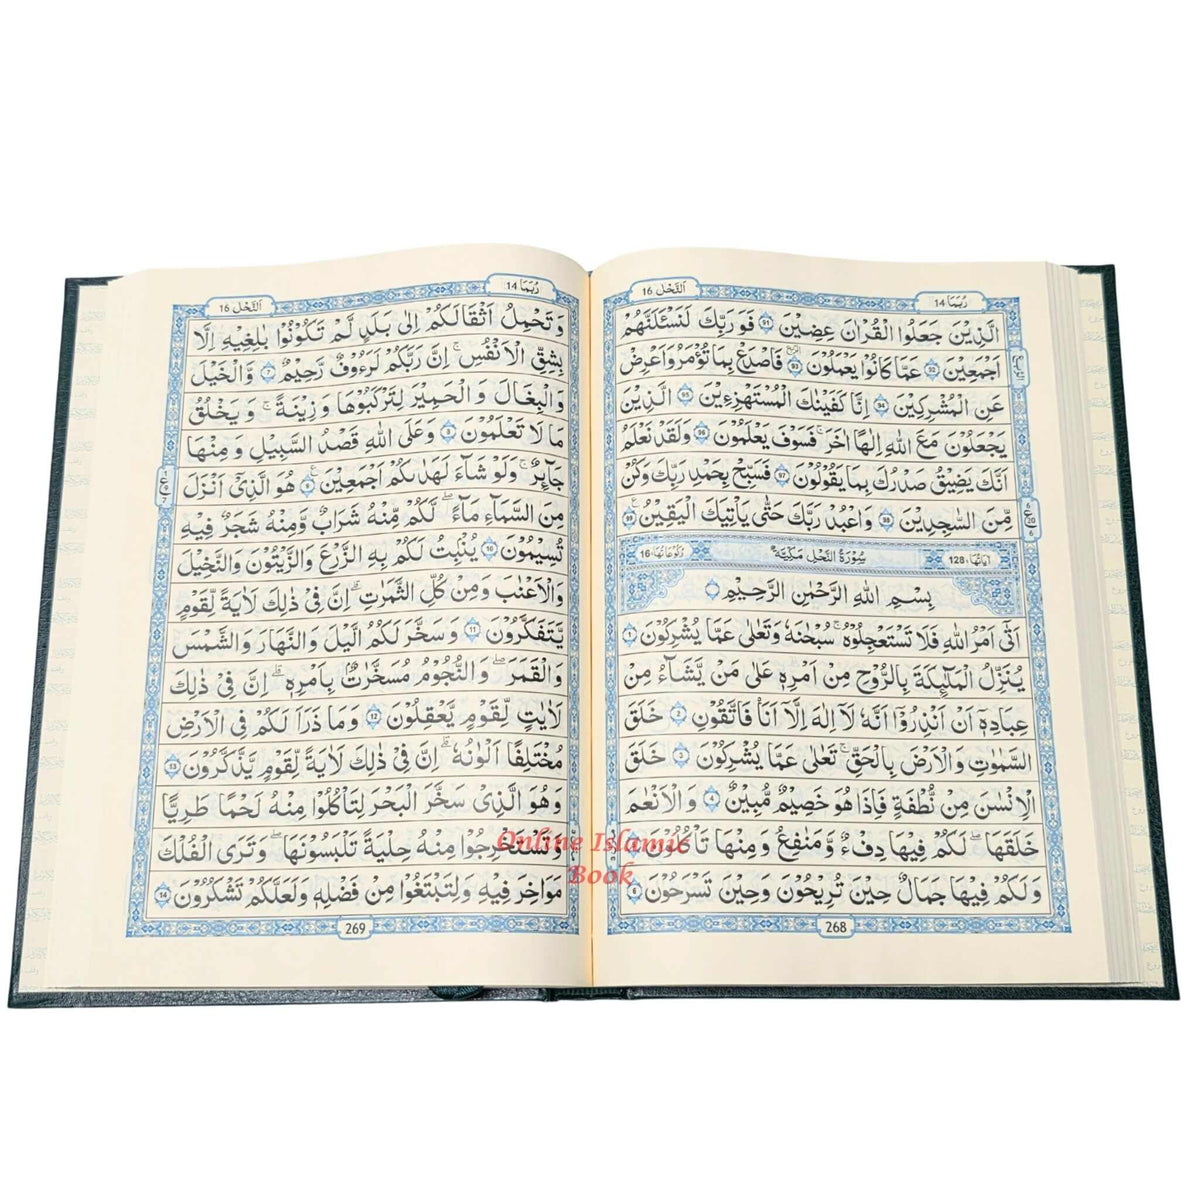 رُبَمَا 14
اَلنَّحْل 16
الَّذِيْنَ جَعَلُوا الْقُرْاٰنَ عِضِيْنَ 91 فَوَرَبِّكَ لَنَسْـَٔلَنَّهُمْ
اَجْمَعِيْنَ 92 عَمَّا كَانُوْا يَعْمَلُوْنَ 93 فَاصْدَعْ بِمَا تُؤْمَرُ وَاَعْرِضْ
عَنِ الْمُشْرِكِيْنَ 94 اِنَّا كَفَيْنٰكَ الْمُسْتَهْزِءِيْنَ 95 الَّذِيْنَ
يَجْعَلُوْنَ مَعَ اللّٰهِ اِلٰهًا اٰخَرَ ۚ فَسَوْفَ يَعْلَمُوْنَ 96 وَلَقَدْ نَعْلَمُ
اَنَّكَ يَضِيْقُ صَدْرُكَ بِمَا يَقُوْلُوْنَ 97 فَسَبِّحْ بِحَمْدِ رَبِّكَ وَكُنْ
مِّنَ السّٰجِدِيْنَ 98 وَاعْبُدْ رَبَّكَ حَتّٰى يَاْتِيَكَ الْيَقِيْنُ 99
اٰيَاتُهَا 128 سُوْرَةُ النَّحْلِ مَكِّيَّةٌ رُكُوْعَاتُهَا 16
بِسْمِ اللّٰهِ الرَّحْمٰنِ الرَّحِيْمِ
اَتٰٓى اَمْرُ اللّٰهِ فَلَا تَسْتَعْجِلُوْهُ ۚ سُبْحٰنَهٗ وَتَعٰلٰى عَمَّا يُشْرِكُوْنَ 1
يُنَزِّلُ الْمَلٰٓئِكَةَ بِالرُّوْحِ مِنْ اَمْرِهٖ عَلٰى مَنْ يَّشَآءُ مِنْ
عِبَادِهٖٓ اَنْ اَنْذِرُوْٓا اَنَّهٗ لَآ اِلٰهَ اِلَّآ اَنَا۠ فَاتَّقُوْنِ 2 خَلَقَ
السَّمٰوٰتِ وَالْاَرْضَ بِالْحَقِّ ۚ تَعٰلٰى عَمَّا يُشْرِكُوْنَ 3 خَلَقَ
الْاِنْسٰنَ مِنْ نُّطْفَةٍ فَاِذَا هُوَ خَصِيْمٌ مُّبِيْنٌ 4 وَالْاَنْعٰمَ
خَلَقَهَا ۖ لَكُمْ فِيْهَا دِفْءٌ وَّمَنٰفِعُ وَمِنْهَا تَاْكُلُوْنَ
وَلَكُمْ فِيْهَا جَمَالٌ حِيْنَ تُرِيْحُوْنَ وَحِيْنَ تَسْرَحُوْنَ 6
268
رُبَمَا 14
اَلنَّحْل 16
وَتَحْمِلُ اَثْقَالَكُمْ اِلٰى بَلَدٍ لَّمْ تَكُوْنُوْا بٰلِغِيْهِ اِلَّا
بِشِقِّ الْاَنْفُسِ ۚ اِنَّ رَبَّكُمْ لَرَءُوْفٌ رَّحِيْمٌ 7 وَّالْخَيْلَ
وَالْبِغَالَ وَالْحَمِيْرَ لِتَرْكَبُوْهَا وَزِيْنَةً ۚ وَيَخْلُقُ
مَا لَا تَعْلَمُوْنَ 8 وَعَلَى اللّٰهِ قَصْدُ السَّبِيْلِ وَمِنْهَا
جَآئِرٌ ۚ وَلَوْ شَآءَ لَهَدٰىكُمْ اَجْمَعِيْنَ 9 هُوَ الَّذِيْٓ اَنْزَلَ
مِنَ السَّمَآءِ مَآءً ۖ لَّكُمْ مِّنْهُ شَرَابٌ وَّمِنْهُ شَجَرٌ فِيْهِ
تُسِيْمُوْنَ 10 يُنْبِتُ لَكُمْ بِهِ الزَّرْعَ وَالزَّيْتُوْنَ وَالنَّخِيْلَ
وَالْاَعْنٰبَ وَمِنْ كُلِّ الثَّمَرٰتِ ۗ اِنَّ فِيْ ذٰلِكَ لَاٰيَةً لِّقَوْمٍ
يَّتَفَكَّرُوْنَ 11 وَسَخَّرَ لَكُمُ الَّيْلَ وَالنَّهَارَ وَالشَّمْسَ
وَالْقَمَرَ ۖ وَالنُّجُوْمُ مُسَخَّرٰتٌۢ بِاَمْرِهٖ ۗ اِنَّ فِيْ ذٰلِكَ
لَاٰيٰتٍ لِّقَوْمٍ يَّعْقِلُوْنَ 12 وَمَا ذَرَاَ لَكُمْ فِي الْاَرْضِ
مُخْتَلِفًا اَلْوَانُهٗ ۗ اِنَّ فِيْ ذٰلِكَ لَاٰيَةً لِّقَوْمٍ يَّذَّكَّرُوْنَ 13
وَهُوَ الَّذِيْ سَخَّرَ الْبَحْرَ لِتَاْكُلُوْا مِنْهُ لَحْمًا طَرِيًّا
وَّتَسْتَخْرِجُوْا مِنْهُ حِلْيَةً تَلْبَسُوْنَهَا ۖ وَتَرَى الْفُلْكَ
مَوَاخِرَ فِيْهِ وَلِتَبْتَغُوْا مِنْ فَضْلِهٖ وَلَعَلَّكُمْ تَشْكُرُوْنَ 14
269
Online Islamic
Book